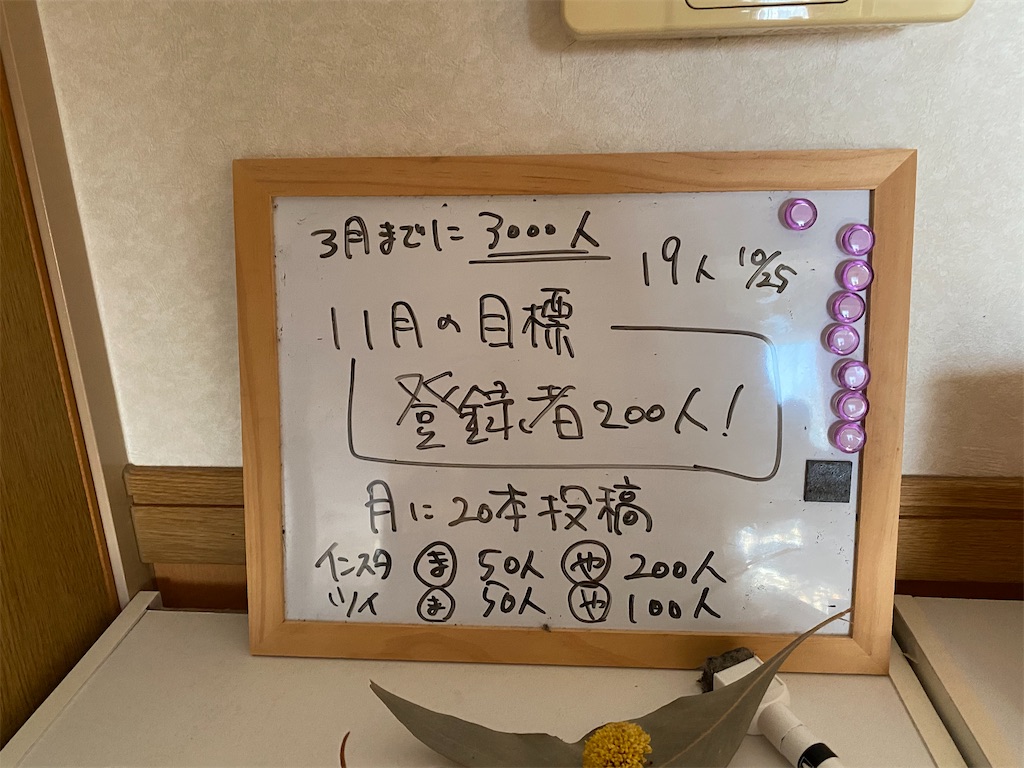 3月までに 3000人
19人 10/25
11月の目標
登録者200人!
月に20本投稿
インスタ ま 50人 や 200人
ツイ ま 50人 や 100人